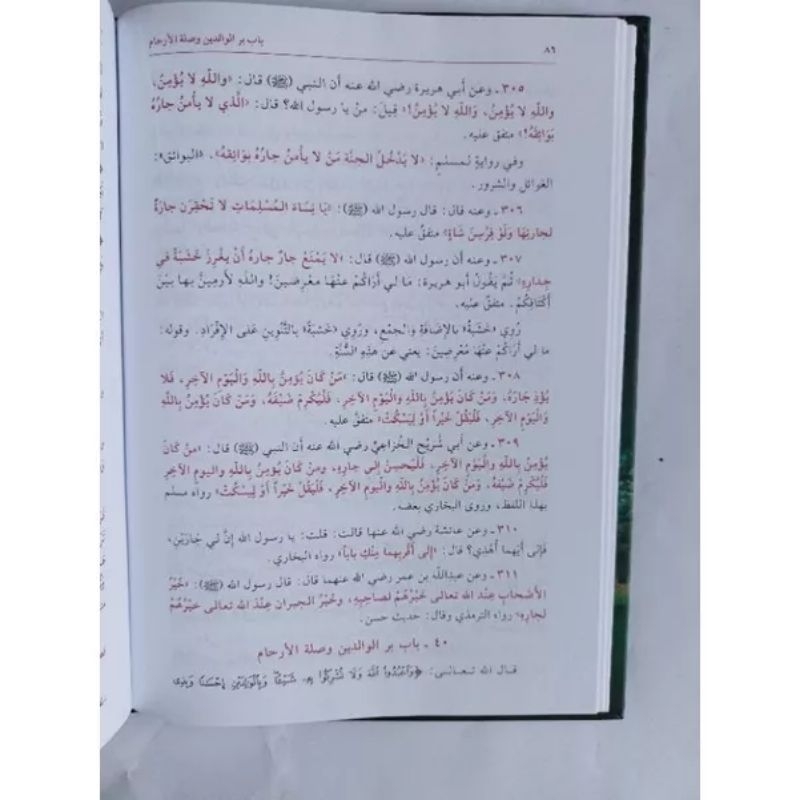 ٨٦
باب بر الوالدين وصلة الأرحام
٣٠٥ ـ وعن أبي هريرة رضي الله عنه أن النبي (ﷺ) قال: «واللّهِ لا يُؤْمِنُ،
واللّهِ لا يُؤْمِنُ، وَاللّهِ لا يُؤْمِنُ!» قِيلَ: منْ يا رسول الله؟ قال: «الَّذي لا يأمنُ جارُهُ
بَوَائِقَهُ!» متفق عليه.
وفي روايةٍ لمسلمٍ: «لا يَدْخُلُ الجنَّة مَنْ لا يأمنُ جارُهُ بوَائِقهُ». «البوائق»:
الغوائل والشرور.
٣٠٦ ـ وعنه قال: قال رسول الله (ﷺ): «يَا نِسَاءَ المُسْلِمَاتِ لا تَحْقِرَن جارَةٌ
لجارتِهَا وَلَوْ فِرْسِنَ شَاةٍ» متفقٌ عليه.
٣٠٧ ـ وعنه أن رسول الله (ﷺ) قال: «لا يَمْنَعْ جارٌ جارهُ أَنْ يغْرِزَ خَشَبَةً في
جِدارِهِ» ثُمَّ يَقُولُ أبو هريرة: مَا لي أَرَاكُمْ عنْهَا معْرِضينَ! واللهِ لأرمينَّ بها بيْنَ
أكْتَافِكُمْ. متفقٌ عليه.
رُوِي «خَشَبَهُ» بالإضَافَةِ والجمْعِ، ورُوِي «خَشَبَةً» بالتَّنْوينِ عَلى الإفْرَادِ. وقوله:
ما لي أَرَاكُمْ عنْهَا مُعْرِضينَ: يعني عن هذِهِ السُّنَّةِ.
٣٠٨ ـ وعنه أن رسول الله (ﷺ) قال: «مَنْ كَانَ يُؤْمِنُ بِاللَّهِ وَالْيَوْمِ الآخِرِ، فَلا
يُؤْذِ جَارَهُ، وَمَنْ كَانَ يُؤْمِنُ بِاللَّهِ وَالْيَوْمِ الآخِرِ، فَلْيُكْرِمْ ضَيْفَهُ، وَمَنْ كَانَ يُؤْمِنُ بِاللَّهِ
وَالْيَوْمِ الآخِرِ، فَلْيَقُلْ خَيْراً أَوْ لِيَسْكُتْ» متفق عليه.
٣٠٩ ـ وعن أبي شُرَيْحٍ الخُزاعيِّ رضي الله عنه أن النبي (ﷺ) قال: «مَنْ كَانَ
يُؤْمِنُ بِاللَّهِ وَالْيَوْمِ الآخِرِ، فَلْيُحْسِنْ إلى جارِهِ، ومَنْ كَانَ يُؤْمِنُ بِاللَّهِ واليومِ الآخِرِ
فَلْيُكْرِمْ ضَيْفَهُ، وَمَنْ كَانَ يُؤْمِنُ بِاللَّهِ وَالْيومِ الآخِرِ، فَلْيَقُلْ خَيْراً أَوْ لِيَسْكُتْ» رواه مسلم
بهذا اللفظ، وروى البخاري بعضه.
٣١٠ ـ وعن عائشة رضي الله عنها قالت: قلت: يا رسول الله إنَّ لي جارَيْنِ،
فَإلى أَيِّهما أُهْدِي؟ قال: «إلى أَقْرَبِهِما مِنْكِ باباً» رواه البخاري.
٣١١ ـ وعن عبدالله بن عمر رضي الله عنهما قال: قال رسول الله (ﷺ): «خَيْرُ
الأصْحَابِ عِنْدَ الله تعالى خَيْرُهُمْ لصاحِبِهِ، وخَيْرُ الجيران عِنْدَ الله تعالى خيْرُهُمْ
لجارِهِ» رواه الترمذي وقال: حديث حسن.
٤٠ ـ باب بر الوالدين وصلة الأرحام
قال الله تعالى: ﴿وَاعْبُدُوا اللَّهَ وَلَا تُشْرِكُوا بِهِ شَيْئًا وَبِالْوَالِدَيْنِ إِحْسَانًا وَبِذِي